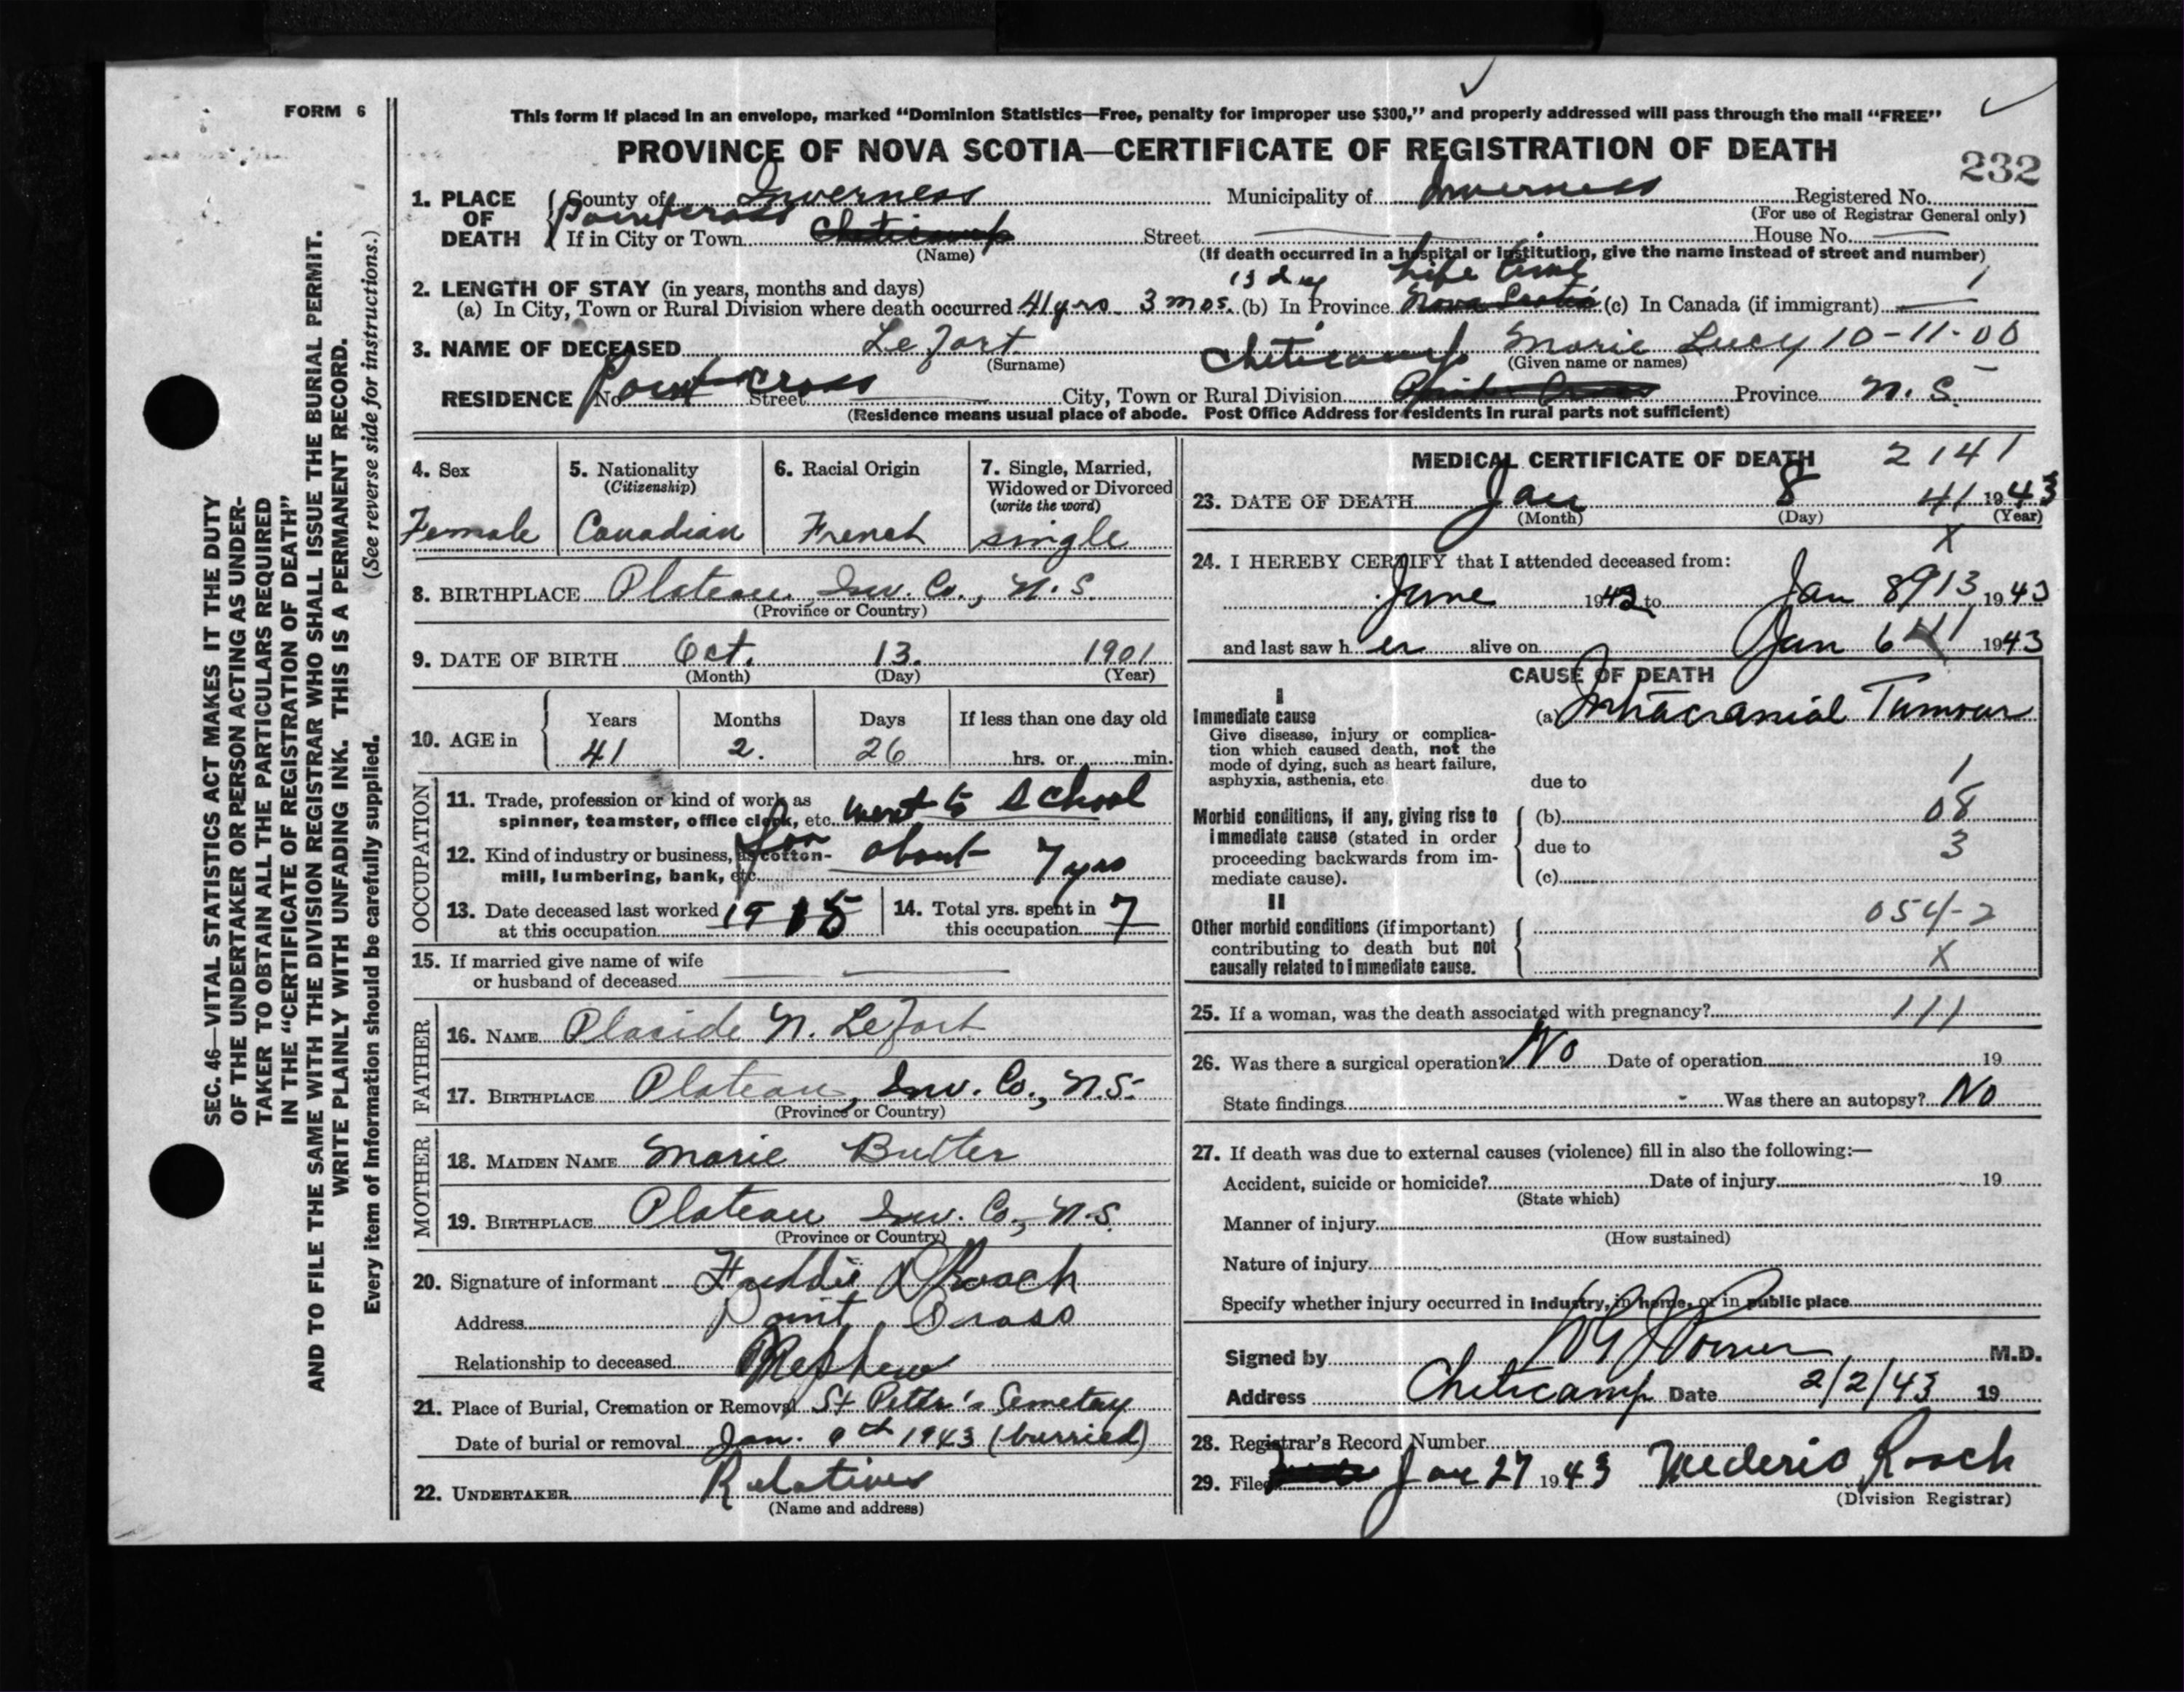 FORM 6
This form if placed in an envelope, marked "Dominion Statistics—Free, penalty for improper use $300," and properly addressed will pass through the mail "FREE"
PROVINCE OF NOVA SCOTIA—CERTIFICATE OF REGISTRATION OF DEATH
232
SEC. 46—VITAL STATISTICS ACT MAKES IT THE DUTY
OF THE UNDERTAKER OR PERSON ACTING AS UNDER-
TAKER TO OBTAIN ALL THE PARTICULARS REQUIRED
IN THE "CERTIFICATE OF REGISTRATION OF DEATH"
AND TO FILE THE SAME WITH THE DIVISION REGISTRAR WHO SHALL ISSUE THE BURIAL PERMIT.
WRITE PLAINLY WITH UNFADING INK. THIS IS A PERMANENT RECORD.
Every item of Information should be carefully supplied. (See reverse side for instructions.)
1. PLACE OF DEATH County of Inverness Municipality of Inverness Registered No.
(For use of Registrar General only)
Point Cross
If in City or Town Cheticamp Street House No.
(Name) (If death occurred in a hospital or institution, give the name instead of street and number)
2. LENGTH OF STAY (in years, months and days) 13 day Life time
(a) In City, Town or Rural Division where death occurred 41 yrs. 3 mos. (b) In Province Nova Scotia (c) In Canada (if immigrant) 1
3. NAME OF DECEASED LeFort Marie Lucy 10-11-00
(Surname) Cheticamp (Given name or names)
RESIDENCE No. Point Cross Street City, Town or Rural Division Point Cross Province N.S.
(Residence means usual place of abode. Post Office Address for residents in rural parts not sufficient)
4. Sex
Female
5. Nationality
(Citizenship)
Canadian
6. Racial Origin
French
7. Single, Married,
Widowed or Divorced
(write the word)
single
8. BIRTHPLACE Plateau Inv. Co., N.S.
(Province or Country)
9. DATE OF BIRTH Oct. 13. 1901
(Month) (Day) (Year)
10. AGE in Years Months Days If less than one day old
41 2. 26 hrs. or min.
OCCUPATION
11. Trade, profession or kind of work as
spinner, teamster, office clerk, etc. went to school
12. Kind of industry or business, as cotton-
mill, lumbering, bank, etc. for about 7 yrs
13. Date deceased last worked
at this occupation 1915
14. Total yrs. spent in
this occupation 7
15. If married give name of wife
or husband of deceased
FATHER
16. NAME Placide N. LeFort
17. BIRTHPLACE Plateau, Inv. Co., N.S.
(Province or Country)
MOTHER
18. MAIDEN NAME Marie Butler
19. BIRTHPLACE Plateau Inv. Co., N.S.
(Province or Country)
20. Signature of informant Freddie D Roach
Address Point Cross
Relationship to deceased Nephew
21. Place of Burial, Cremation or Removal St Peter's Cemetay
Date of burial or removal Jan. 9th 1943 (burried)
22. UNDERTAKER Relatives
(Name and address)
MEDICAL CERTIFICATE OF DEATH 2141
23. DATE OF DEATH Jan 8 41 1943
(Month) (Day) (Year)
X
24. I HEREBY CERTIFY that I attended deceased from:
June 1942 to Jan 8 913 1943
and last saw her alive on Jan 6 1943
CAUSE OF DEATH
I
Immediate cause
Give disease, injury or complica-
tion which caused death, not the
mode of dying, such as heart failure,
asphyxia, asthenia, etc
(a) Intracranial Tumour
due to 1
Morbid conditions, if any, giving rise to
immediate cause (stated in order
proceeding backwards from im-
mediate cause).
(b) 08
due to 3
(c)
II
Other morbid conditions (if important)
contributing to death but not
causally related to immediate cause.
054-2
X
25. If a woman, was the death associated with pregnancy? 111
26. Was there a surgical operation? No Date of operation 19
State findings Was there an autopsy? No
27. If death was due to external causes (violence) fill in also the following:—
Accident, suicide or homicide? Date of injury 19
(State which)
Manner of injury
(How sustained)
Nature of injury
Specify whether injury occurred in Industry, in home, or in public place
Signed by M.D.
Address Cheticamp Date 2/2/43 19
28. Registrar's Record Number
29. Filed Jan 27 1943 Mederic Roach
(Division Registrar)